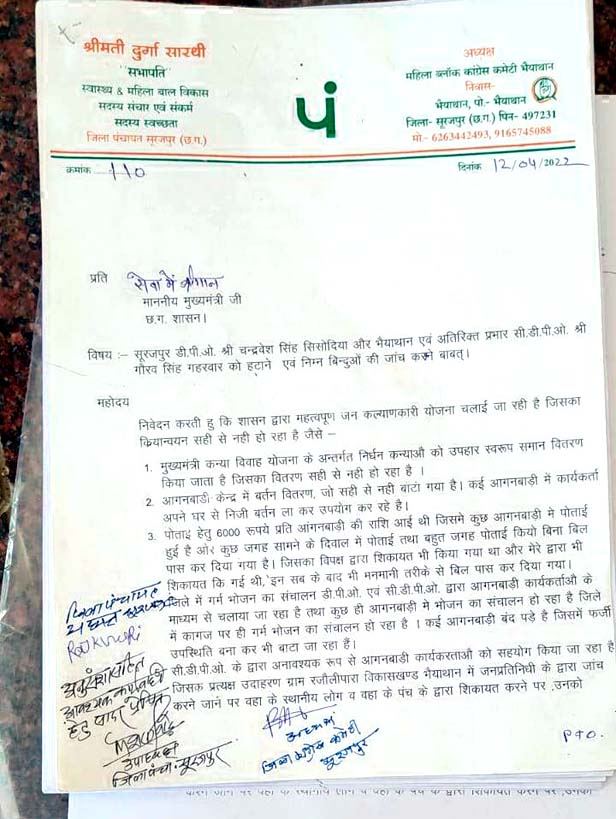 श्रीमती दुर्गा सारथी
"सभापति"
स्वास्थ्य & महिला बाल विकास
सदस्य संचार एवं संकर्म
सदस्य स्वच्छता
जिला पंचायत सूरजपुर (छ.ग.)
पं
अध्यक्ष
महिला ब्लॉक कांग्रेस कमेटी भैयाथान
निवास-
भैयाथान, पो.- भैयाथान
जिला- सूरजपुर (छ.ग.) पिन- 497231
मो.- 6263442493, 9165745088
क्रमांक 110
दिनांक 12/04/2022
प्रति सेवा में श्रीमान
माननीय मुख्यमंत्री जी
छ.ग. शासन।
विषय :– सूरजपुर डी.पी.ओ. श्री चन्द्रवेश सिंह सिसोदिया और भैयाथान एवं अतिरिक्त प्रभार सी.डी.पी.ओ. श्री
गौरव सिंह गहरवार को हटाने एवं निम्न बिन्दुओं की जांच करने बाबत्।
महोदय
निवेदन करती हु कि शासन द्वारा महत्वपूर्ण जन कल्याणकारी योजना चलाई जा रही है जिसका
क्रियान्वयन सही से नही हो रहा है जैसे –
1. मुख्यमंत्री कन्या विवाह योजना के अन्तर्गत निर्धन कन्याओ को उपहार स्वरूप समान वितरण
किया जाता है जिसका वितरण सही से नही हो रहा है ।
2. आगनबाडी केन्द्र में बर्तन वितरण, जो सही से नही बांटा गया है। कई आगनबाडी में कार्यकर्ता
अपने घर से निजी बर्तन ला कर उपयोग कर रहे है।
3. पोताई हेतु 6000 रूपये प्रति आंगनबाडी की राशि आई थी जिसमे कुछ आगनबाडी मे पोताई
हुई है और कुछ जगह सामने के दिवाल में पोताई तथा बहुत जगह पोताई कियो बिना बिल
पास कर दिया गया है। जिसका विपक्ष द्वारा शिकायत भी किया गया था और मेरे द्वारा भी
शिकायत कि गई थी, इन सब के बाद भी मनमानी तरीके से बिल पास कर दिया गया।
जिले में गर्म भोजन का संचालन डी.पी.ओ. एवं सी.डी.पी.ओ. द्वारा आगनबाडी कार्यकर्ताओं के
माध्यम से चलाया जा रहा है तथा कुछ ही आगनबाडी मे भोजन का संचालन हो रहा है जिले
में कागज पर ही गर्म भोजन का संचालन हो रहा है । कई आगनबाडी बंद पड़े है जिसमें फर्जी
उपस्थिति बना कर भी बाटा जा रहा है।
सी.डी.पी.ओ. के द्वारा अनावश्यक रूप से आगनबाडी कार्यकरताओ को सहयोग किया जा रहा है
जिसका प्रत्यक्ष उदाहरण ग्राम रजौलीपारा विकासखण्ड भैयाथान में जनप्रतिनिधी के द्वारा जांच
करने जाने पर वहा के स्थानीय लोग व वहा के पंच के द्वारा शिकायत करने पर ,उनको
जिला पंचायत
Rajkuwari
उपाध्यक्ष
जिला पंचा. सूरजपुर
अध्यक्ष
जिला कांग्रेस कमेटी
सूरजपुर
P.T.O.
करने जाने पर वहा के स्थानीय लोग व वहा के पंच के द्वारा शिकायत करने पर ,उनको